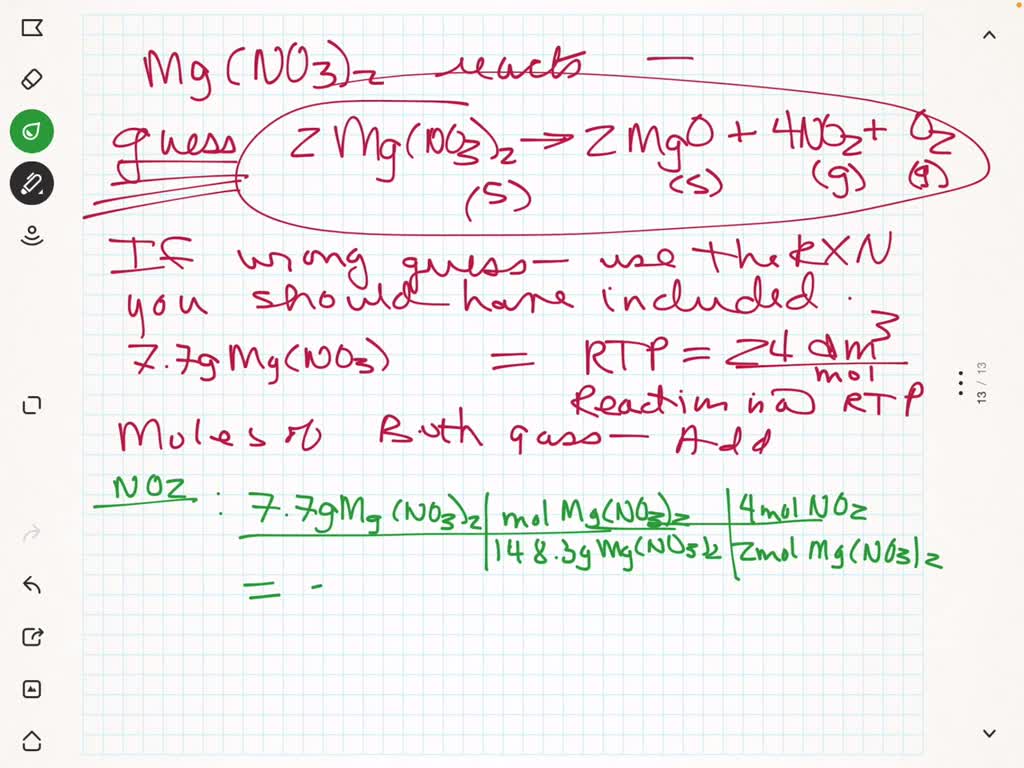 Mg(NO3)2 reacts —
guess 2Mg(NO3)2 → 2MgO + 4NO2 + O2
(S) (S) (g) (g)
If wrong guess— use the RXN
you should have included.
7.7g Mg(NO3) = RTP = 24 dm3/mol
Reaction is @ RTP
Moles of Both gass— Add
NO2 : 7.7g Mg(NO3)2 | mol Mg(NO3)2 | 4mol NO2
148.3g Mg(NO3)2 | 2mol Mg(NO3)2
= .
13 / 13